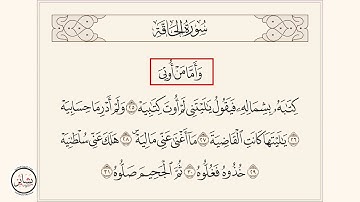 سُورَةُ الحَاقَّةِ
وَأَمَّا مَنْ أُوتِىَ
كِتَٰبَهُۥ بِشِمَالِهِۦ فَيَقُولُ يَٰلَيْتَنِى لَمْ أُوتَ كِتَٰبِيَهْ ٢٥ وَلَمْ أَدْرِ مَا حِسَابِيَهْ
٢٦ يَٰلَيْتَهَا كَانَتِ ٱلْقَاضِيَةَ ٢٧ مَآ أَغْنَىٰ عَنِّى مَالِيَهْ ۜ ٢٨ هَلَكَ عَنِّى سُلْطَٰنِيَهْ
٢٩ خُذُوهُ فَغُلُّوهُ ٣٠ ثُمَّ ٱلْجَحِيمَ صَلُّوهُ ٣١